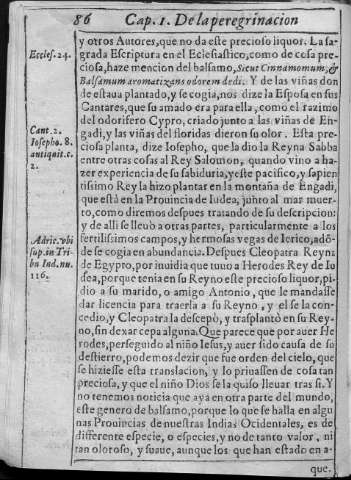 86 Cap. 1. De la peregrinacion
y otros Autores, que no da este precioso liquor. La sa-
Eccles. 24. grada Escriptura en el Eclesiastico, como de cosa pre
ciosa, haze mencion del balsamo, Sicut Cinnamomum, &
Balsamum aromatizans odorem dedi. Y de las viñas don
de estaua plantado, y se cogia, nos dize la Esposa en sus
Cantares, que su amado era para ella, como el razimo
del odorifero Cypro, criado junto a las viñas de En-
Cant. 2. gadi, y las viñas del floridas dieron su olor. Esta pre
Iosepho. 8. ciosa planta, dize Iosepho, que la dio la Reyna Sabba
antiquit. c. entre otras cosas al Rey Salomon, quando vino a ha-
2. zer experiencia de su sabiduria, y este pacifico, y sapien
tissimo Rey la hizo plantar en la montaña de Engadi,
que està en la Prouincia de Iudea, junto al mar muer-
to, como diremos despues tratando de su descripcion:
y de alli se lleuò a otras partes, particularmente a los
Adric. vbi fertilissimos campos, y hermosas vegas de Ierico, adõ-
sup. in Tri- de se cogia en abundancia. Despues Cleopatra Reyna
bu Ind. nu. de Egypto, por inuidia que tuuo a Herodes Rey de Iu
116. dea, porque tenia en su Reyno este precioso liquor, pi-
dio a su marido, o amigo Antonio, que le mandasse
dar licencia para traerla a su Reyno, y el se la con-
cedio, y Cleopatra la descepò, y trasplantò en su Rey-
no, sin dexar cepa alguna. Que parece que por auer He
rodes, perseguido al niño Iesus, y auer sido causa de su
destierro, podemos dezir que fue orden del cielo, que
se hiziesse esta translacion, y lo priuassen de cosa tan
preciosa, y que el niño Dios se la quiso lleuar tras si. Y
no tenemos noticia que aya en otra parte del mundo,
este genero de balsamo, porque lo que se halla en algu
nas Prouincias de nuestras Indias Ocidentales, es de
differente especie, o especies, y no de tanto valor, ni
tan oloroso, y suaue, aunque los que han estado en a-
que.